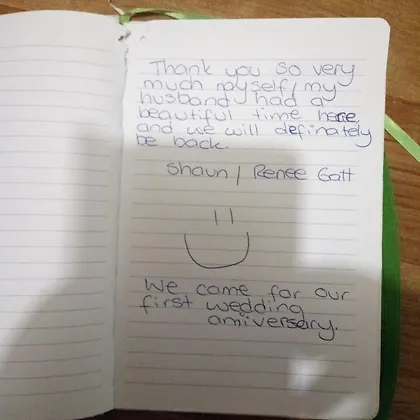 Thank you so very
much myself/my
husband had a
beautiful time here,
and we will definately
be back.
Shaun / Renee Gatt
We came for our
first wedding
anniversary.